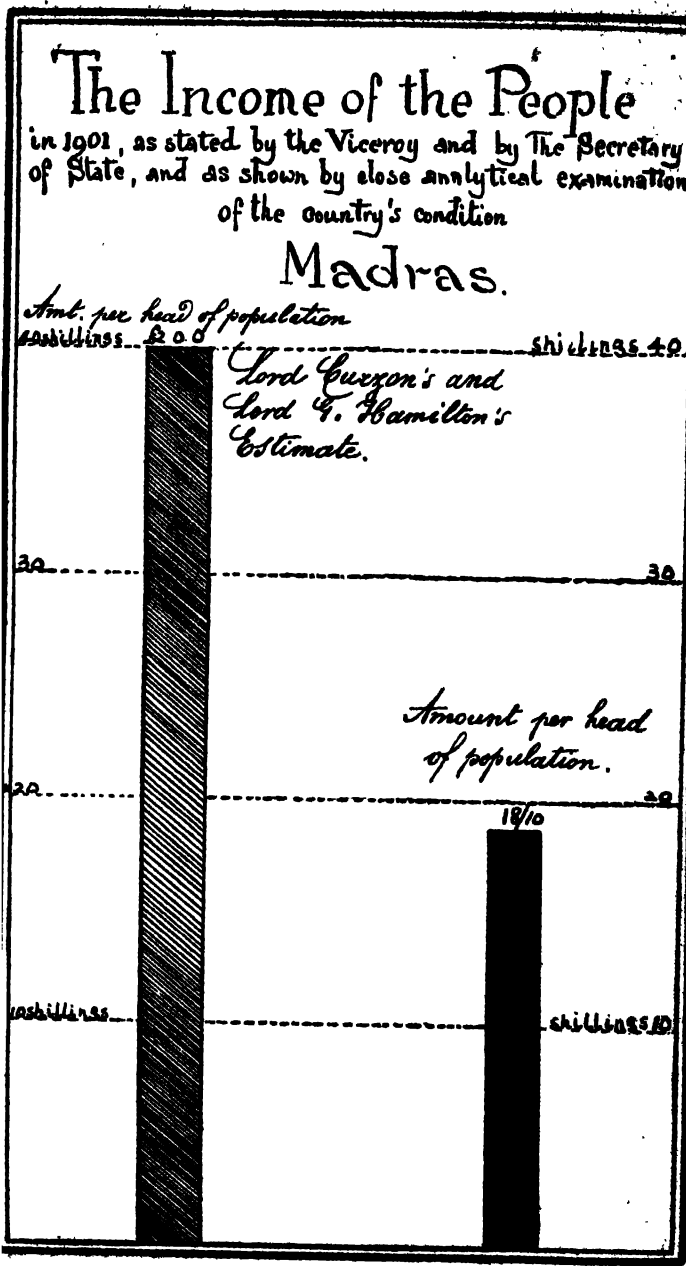 The Income of the People
in 1901, as stated by the Viceroy and by The Secretary
of State, and as shown by close analytical examination
of the country's condition
Madras.
Amt. per head of population
40shillings £2 0 0 shillings 40
Lord Curzon's and
Lord G. Hamilton's
Estimate.
30 30
Amount per head
of population.
20 20
18/10
10shillings shillings 10